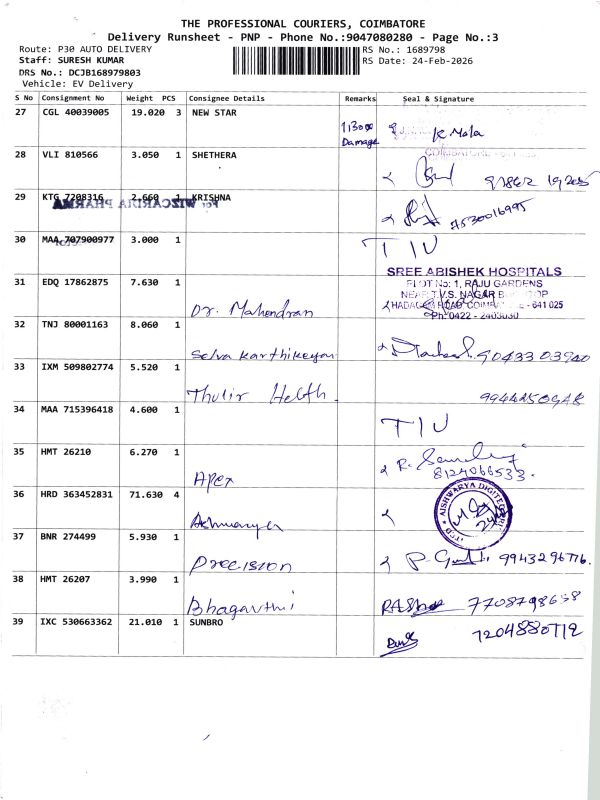 THE PROFESSIONAL COURIERS, COIMBATORE
Delivery Runsheet - PNP - Phone No.:9047080280 - Page No.:3
Route: P30 AUTO DELIVERY
RS No.: 1689798
Staff: SURESH KUMAR
RS Date: 24-Feb-2026
DRS No.: DCJB168979803
Vehicle: EV Delivery
S No Consignment No Weight PCS Consignee Details Remarks Seal & Signature
27 CGL 40039005 19.020 3 NEW STAR
Damage K Mala
28 VLI 810566 3.050 1 SHETHERA
29 KTG 7208316 2.660 1 KRISHNA
For WIZCARDIA PHARMA
7530016995
30 MAA 707900977 3.000 1 TIU
SREE ABISHEK HOSPITALS
31 EDQ 17862875 7.630 1 PLOT No: 1, RAJU GARDENS
NEAR T.V.S. NAGAR
Dr. Mahendran ROAD - 641 025
Ph: 0422 - 2403030
32 TNJ 80001163 8.060 1
Selva Karthikeyan 90433 03940
33 IXM 509802774 5.520 1
Thulir Helth
34 MAA 715396418 4.600 1 TIU
35 HMT 26210 6.270 1
Apex 8124066533.
36 HRD 363452831 71.630 4
AISHWARYA
37 BNR 274499 5.930 1
Precision
38 HMT 26207 3.990 1
Bhagavthi 7708798658
39 IXC 530663362 21.010 1 SUNBRO